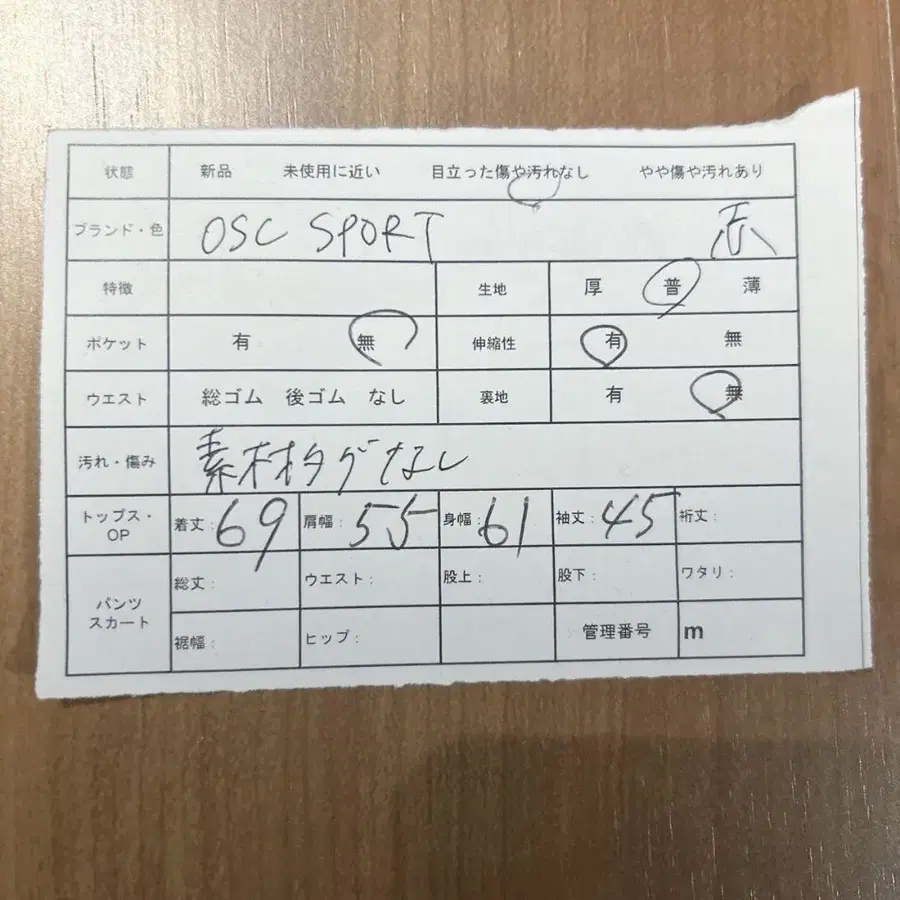 状態 新品 未使用に近い 目立った傷や汚れなし やや傷や汚れあり
ブランド・色 OSC SPORT 赤
特徴 生地 厚 普 薄
ポケット 有 無 伸縮性 有 無
ウエスト 総ゴム 後ゴム なし 裏地 有 無
汚れ・傷み 素材タグなし
トップス・OP 着丈:69 肩幅:55 身幅:61 袖丈:45 裄丈:
パンツ スカート 総丈: ウエスト: 股上: 股下: ワタリ:
裾幅: ヒップ: 管理番号 m